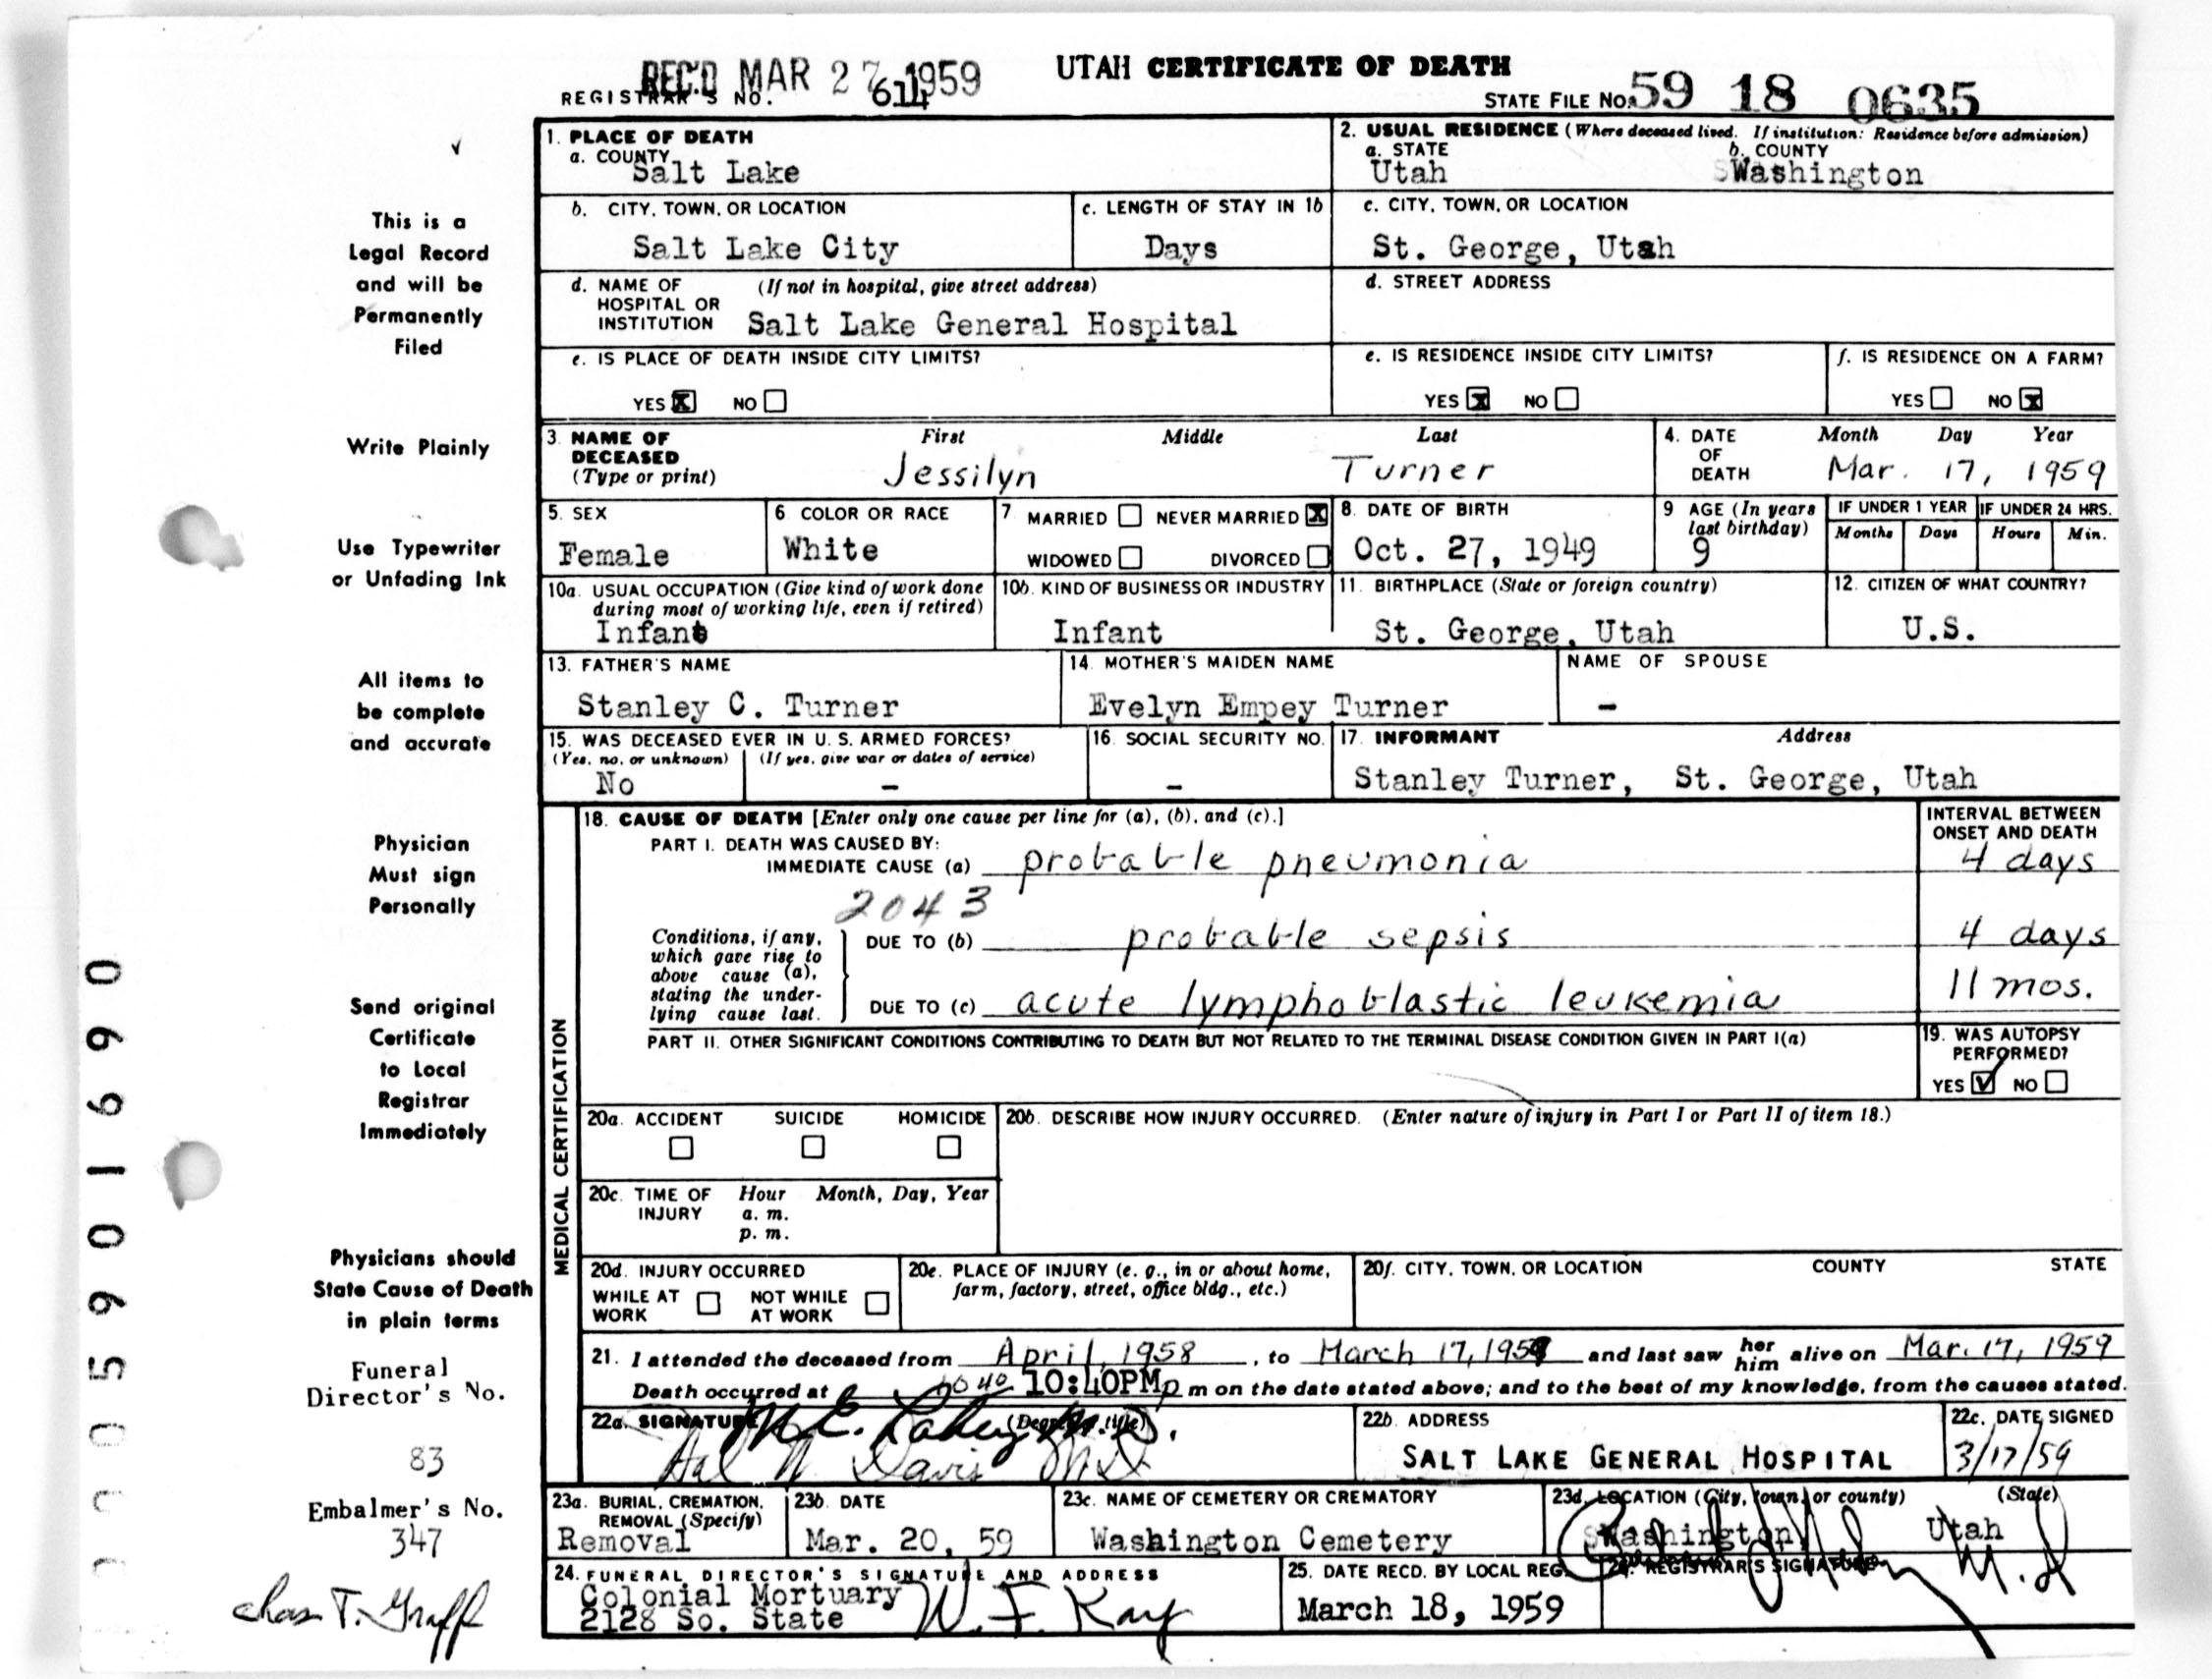 REC'D MAR 27 1959
UTAH CERTIFICATE OF DEATH
REGISTRAR'S NO. 614
STATE FILE NO. 59 18 0635
1. PLACE OF DEATH
a. COUNTY
Salt Lake
2. USUAL RESIDENCE (Where deceased lived. If institution: Residence before admission)
a. STATE b. COUNTY
Utah Washington
b. CITY, TOWN, OR LOCATION
Salt Lake City
c. LENGTH OF STAY IN 1b
Days
c. CITY, TOWN, OR LOCATION
St. George, Utah
d. NAME OF HOSPITAL OR INSTITUTION (If not in hospital, give street address)
Salt Lake General Hospital
d. STREET ADDRESS
e. IS PLACE OF DEATH INSIDE CITY LIMITS?
YES X NO
e. IS RESIDENCE INSIDE CITY LIMITS?
YES X NO
f. IS RESIDENCE ON A FARM?
YES NO X
3. NAME OF DECEASED (Type or print)
First Middle Last
Jessilyn Turner
4. DATE OF DEATH
Month Day Year
Mar. 17, 1959
5. SEX
Female
6 COLOR OR RACE
White
7 MARRIED NEVER MARRIED X
WIDOWED DIVORCED
8. DATE OF BIRTH
Oct. 27, 1949
9 AGE (In years last birthday)
9
IF UNDER 1 YEAR
Months Days
IF UNDER 24 HRS.
Hours Min.
10a. USUAL OCCUPATION (Give kind of work done during most of working life, even if retired)
Infant
10b. KIND OF BUSINESS OR INDUSTRY
Infant
11. BIRTHPLACE (State or foreign country)
St. George, Utah
12. CITIZEN OF WHAT COUNTRY?
U.S.
13. FATHER'S NAME
Stanley C. Turner
14. MOTHER'S MAIDEN NAME
Evelyn Empey Turner
NAME OF SPOUSE
-
15. WAS DECEASED EVER IN U. S. ARMED FORCES?
(Yes, no, or unknown) (If yes, give war or dates of service)
No -
16. SOCIAL SECURITY NO.
-
17. INFORMANT Address
Stanley Turner, St. George, Utah
MEDICAL CERTIFICATION
18. CAUSE OF DEATH [Enter only one cause per line for (a), (b), and (c).]
INTERVAL BETWEEN ONSET AND DEATH
PART I. DEATH WAS CAUSED BY:
IMMEDIATE CAUSE (a) probable pneumonia 4 days
2043
Conditions, if any, which gave rise to above cause (a), stating the underlying cause last.
DUE TO (b) probable sepsis 4 days
DUE TO (c) acute lymphoblastic leukemia 11 mos.
PART II. OTHER SIGNIFICANT CONDITIONS CONTRIBUTING TO DEATH BUT NOT RELATED TO THE TERMINAL DISEASE CONDITION GIVEN IN PART I(a)
19. WAS AUTOPSY PERFORMED?
YES ✓ NO
20a. ACCIDENT SUICIDE HOMICIDE
20b. DESCRIBE HOW INJURY OCCURRED. (Enter nature of injury in Part I or Part II of item 18.)
20c. TIME OF INJURY Hour Month, Day, Year
a. m.
p. m.
20d. INJURY OCCURRED
WHILE AT WORK NOT WHILE AT WORK
20e. PLACE OF INJURY (e. g., in or about home, farm, factory, street, office bldg., etc.)
20f. CITY, TOWN, OR LOCATION COUNTY STATE
21. I attended the deceased from April, 1958, to March 17, 1959 and last saw her him alive on Mar. 17, 1959
Death occurred at 10:40 10:40PM p m on the date stated above; and to the best of my knowledge, from the causes stated.
22a. SIGNATURE (Degree or title)
M. E. Lahey M.D.
Hal N Davis MD
22b. ADDRESS
SALT LAKE GENERAL HOSPITAL
22c. DATE SIGNED
3/17/59
23a. BURIAL, CREMATION, REMOVAL (Specify)
Removal
23b. DATE
Mar. 20, 59
23c. NAME OF CEMETERY OR CREMATORY
Washington Cemetery
23d. LOCATION (City, town, or county) (State)
Washington, Utah
24. FUNERAL DIRECTOR'S SIGNATURE AND ADDRESS
Colonial Mortuary
2128 So. State W. F. Kay
25. DATE RECD. BY LOCAL REG.
March 18, 1959
26. REGISTRAR'S SIGNATURE
M.D
This is a
Legal Record
and will be
Permanently
Filed
Write Plainly
Use Typewriter
or Unfading Ink
All items to
be complete
and accurate
Physician
Must sign
Personally
Send original
Certificate
to Local
Registrar
Immediately
Physicians should
State Cause of Death
in plain terms
Funeral
Director's No.
83
Embalmer's No.
347
Chas T. Graff
005901690